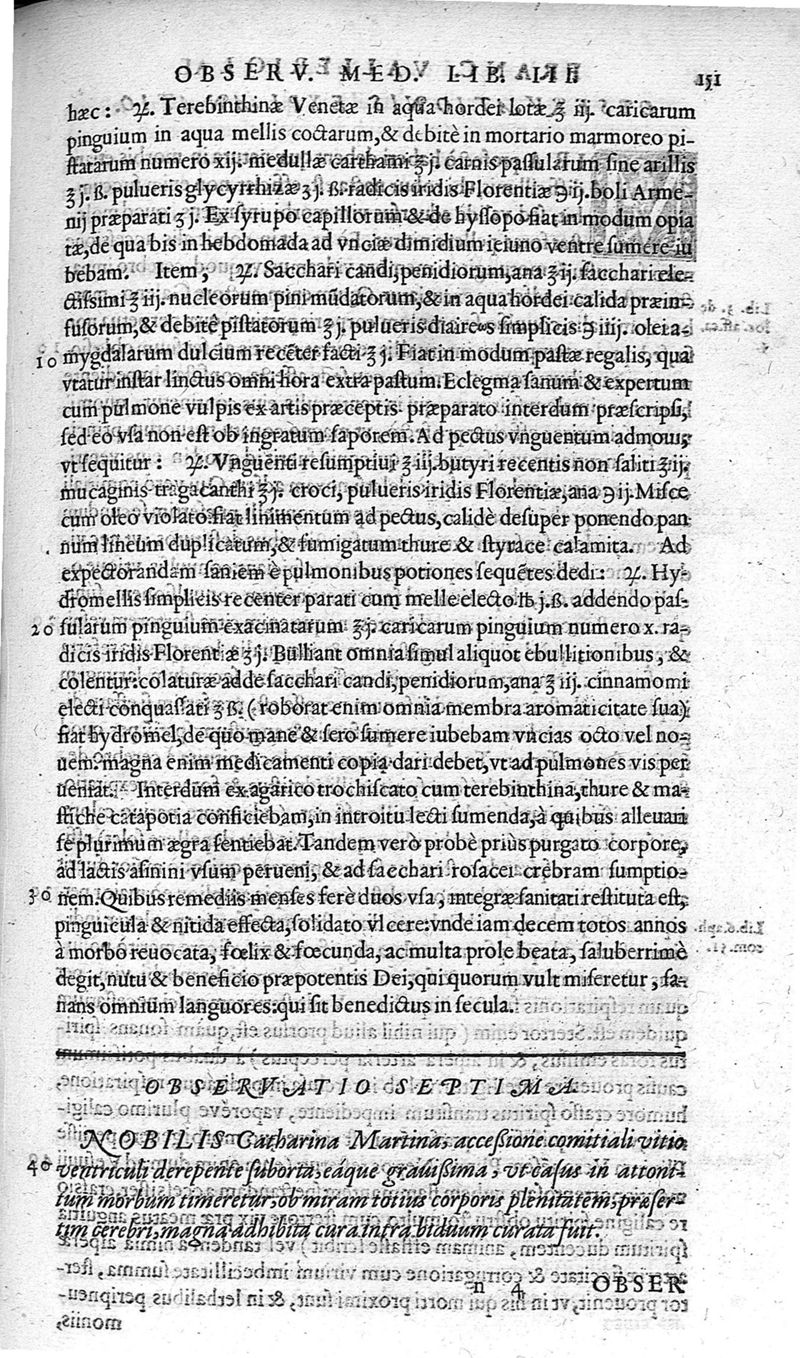 OBSERV. MED. LIB. III. 151
hæc: ♃. Terebinthinæ Venetæ in aqua hordei lotæ ℥ iij. caricarum
pinguium in aqua mellis coctarum, & debitè in mortario marmoreo pi-
ſtatarum numero xij. medullæ carthami ℥ j. carnis paſſularum ſine arillis
℥ j. ß. pulueris glycyrrhizæ ʒ j. ß. radicis iridis Florentiæ ℈ ij. boli Arme-
nij præparati ʒ j. Ex ſyrupo capillorum & de hyſſopo fiat in modum opia
tæ, de qua bis in hebdomada ad vnciæ dimidium ieiuno ventre ſumere iu
bebam. Item, ♃. Sacchari candi, penidiorum, ana ℥ ij. ſacchari ele-
ctiſſimi ℥ iij. nucleorum pini mūdatorum, & in aqua hordei calida præin-
fuſorum, & debitè piſtatorum ℥ j. pulueris diaireos ſimplicis ℈ iiij. olei a-
10 mygdalarum dulcium recēter facti ℥ j. Fiat in modum paſtæ regalis, qua
vtatur inſtar linctus omni hora extra paſtum. Eclegma ſanum & expertum
cum pulmone vulpis ex artis præceptis præparato interdum præſcripſi,
ſed eo vſa non eſt ob ingratum ſaporem. Ad pectus vnguentum admoui,
vt ſequitur: ♃. Vnguēti reſumptiui ℥ iij. butyri recentis non ſaliti ℥ ij.
mucaginis tragacanthi ℥ j. croci, pulueris iridis Florentiæ, ana ℈ ij. Miſce
cum oleo violato fiat linimentum ad pectus, calidè deſuper ponendo pan
num lineum duplicatum, & fumigatum thure & ſtyrace calamita. Ad
expectorandam ſaniem è pulmonibus potiones ſequētes dedi: ♃. Hy-
dromellis ſimplicis recenter parati cum melle electo ℔ j. ß. addendo paſ-
20 ſularum pinguium exacinatarum ℥ j. caricarum pinguium numero x. ra-
dicis iridis Florentiæ ʒ j. Bulliant omnia ſimul aliquot ebullitionibus, &
colentur: colaturæ adde ſacchari candi, penidiorum, ana ℥ iij. cinnamomi
electi conquaſſati ʒ ß. (roborat enim omnia membra aromaticitate ſua)
fiat hydromel, de quo mane & ſero ſumere iubebam vncias octo vel no-
uem. magna enim medicamenti copia dari debet, vt ad pulmones vis per
ueniat. Interdum ex agarico trochiſcato cum terebinthina, thure & ma-
ſtiche catapotia conficiebam, in introitu lecti ſumenda, à quibus alleuari
ſe plurimum ægra ſentiebat. Tandem verò probè priùs purgato corpore,
ad lactis aſinini vſum perueni, & ad ſacchari roſacei crebram ſumptio-
30 nem. Quibus remediis menſes ferè duos vſa, integræ ſanitati reſtituta eſt,
pinguicula & nitida effecta, ſolidato vlcere: vnde iam decem totos annos
à morbo reuocata, fœlix & fœcunda, ac multa prole beata, ſaluberrimè
degit, nutu & beneficio præpotentis Dei, qui quorum vult miſeretur, ſa-
nans omnium languores: qui ſit benedictus in ſecula.
OBSERVATIO SEPTIMA.
NOBILIS Catharina Martina, acceßione comitiali vitio
40 ventriculi derepente ſuborta, eáque grauiſſima, vt caſus in attoni-
tum morbum timeretur, ob miram totius corporis plenitatem, præſer-
tim cerebri, magna adhibita cura intra biduum curata fuit.
n 4 OBSER